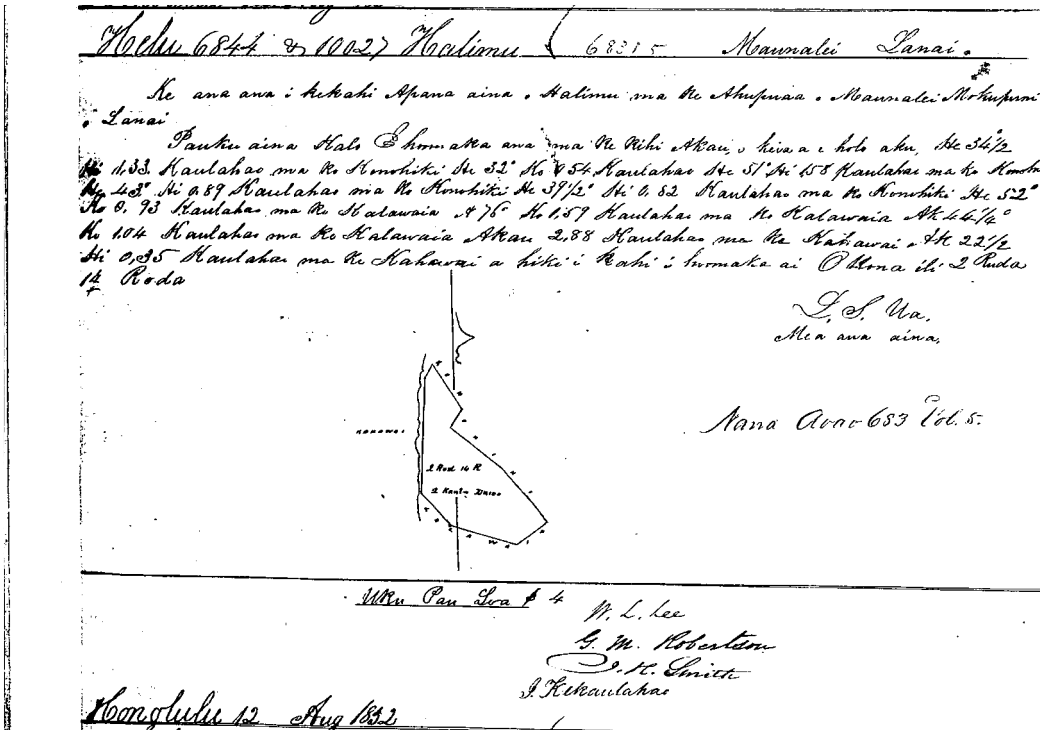 Helu 6844 & 10027 Halimu 6831 5 Maunalei Lanai.
Ke ana ana i kekahi Apana aina. Halimu ma ke Ahupuaa. Maunalei Mokupuni
Lanai
Pauku aina Kalo E hoomaka ana ma ke kihi Akau, a holo aku, He 34°1/2
Hi 1,33 Kaulahao ma ko Konohiki He 32° Ko 0,54 Kaulahao He 51° Hi 1,58 Kaulahao ma ko Konohi
He 43° Hi 0,89 Kaulahao ma ko Konohiki He 39 1/2° Hi 0,82 Kaulahao ma ko Konohiki He 52°
Ko 0,93 Kaulahao ma ko Kalawaia A 76° Ko 1,59 Kaulahao ma ko Kalawaia Ak 44 1/4°
Ko 1,04 Kaulahao ma ko Kalawaia Akau 2,88 Kaulahao ma ke Kahawai. Ak 22°1/2
Hi 0,35 Kaulahao ma ke Kahawai a hiki i kahi i hoomaka ai O kona ili 2 Ruda
14 Roda
S. Ua.
Mea ana aina,
Nana Aoao 683 Vol. 5.
KAHAWAI
KONOHIKI
2 Rud 14 R
KALAWAIA
Uku Pau Loa $ 4
W. L. Lee
G. M. Robertson
J. H. Smith
J. Kekaulahao
Honolulu 12 Aug 1852